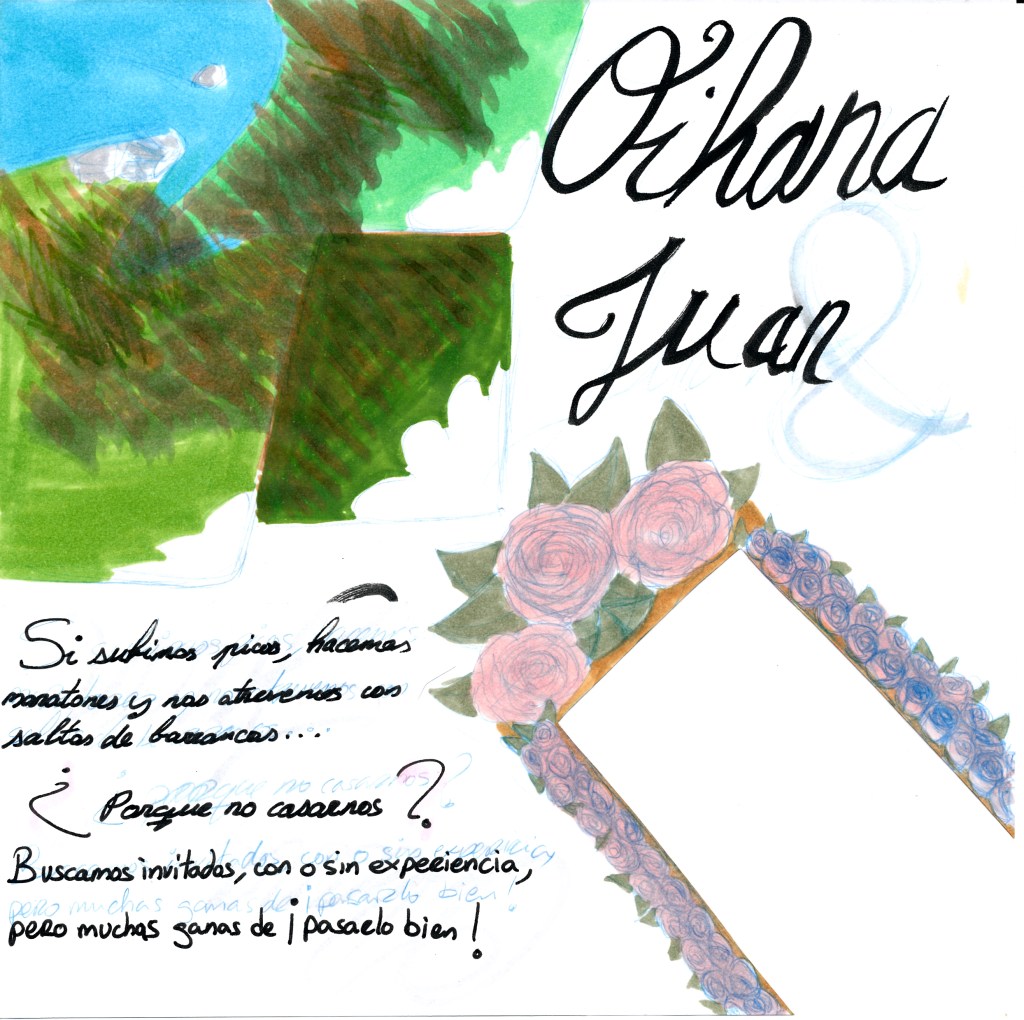 Oihana
&
Juan
Si subimos picos, hacemos
maratones y nos atrevemos con
saltos de barrancos....
¿Porque no casarnos?
Buscamos invitados, con o sin experiencia,
pero muchas ganas de ¡pasarlo bien!